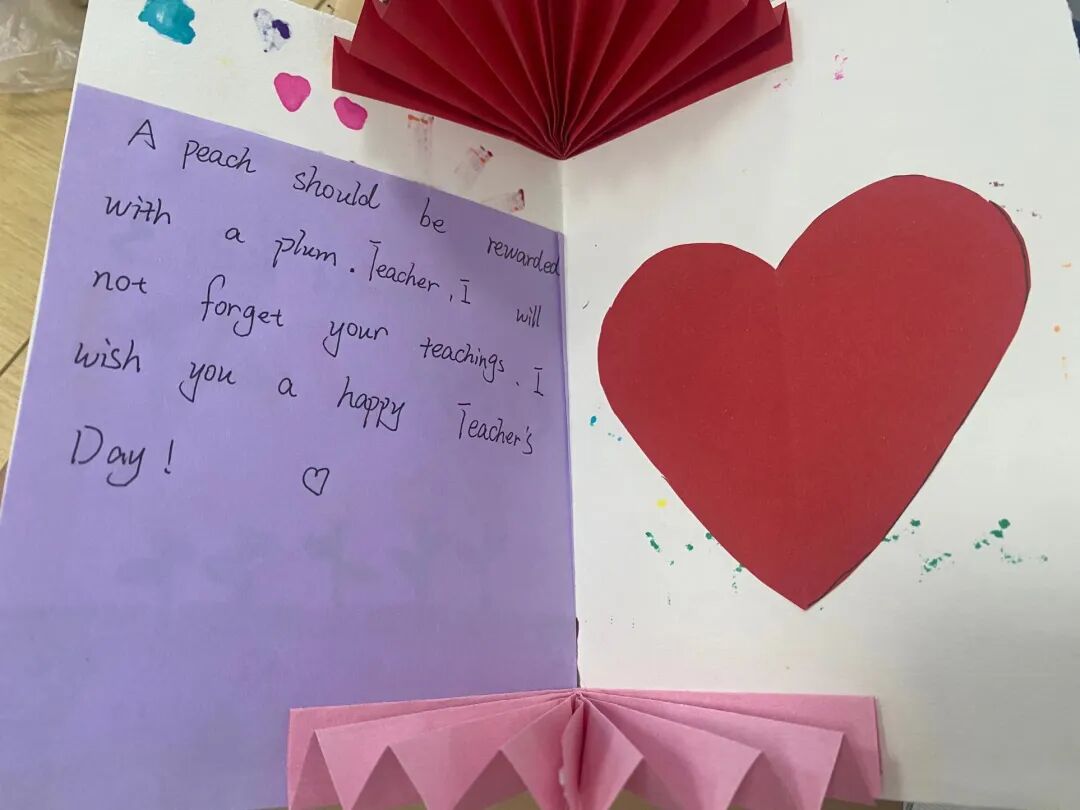 A peach should be rewarded
with a plum. Teacher, I will
not forget your teachings. I
wish you a happy Teacher's
Day! ♡